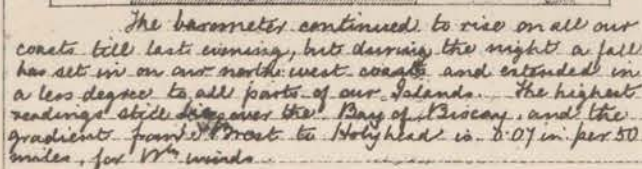 The barometer continued to rise on all our
coasts till last evening, but during the night a fall
has set in on our north west coasts and extended in
a less degree to all parts of our Islands. The highest
readings still lie over the Bay of Biscay, and the
gradient from Brest to Holyhead is 0.07 in per 50
miles, for Wn winds.